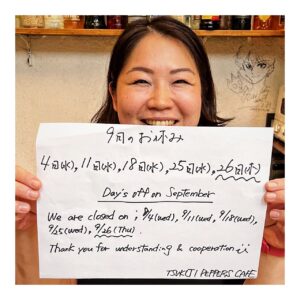 9月のお休み
4日(水), 11日(水), 18日(水), 25日(水), 26日(木)
Day's off on September
We are closed on ; 9/4(wed), 9/11(wed), 9/18(wed),
9/25(wed), 9/26(Thu).
Thank you for understanding & cooperation
TSUKIJI PEPPERS CAFE